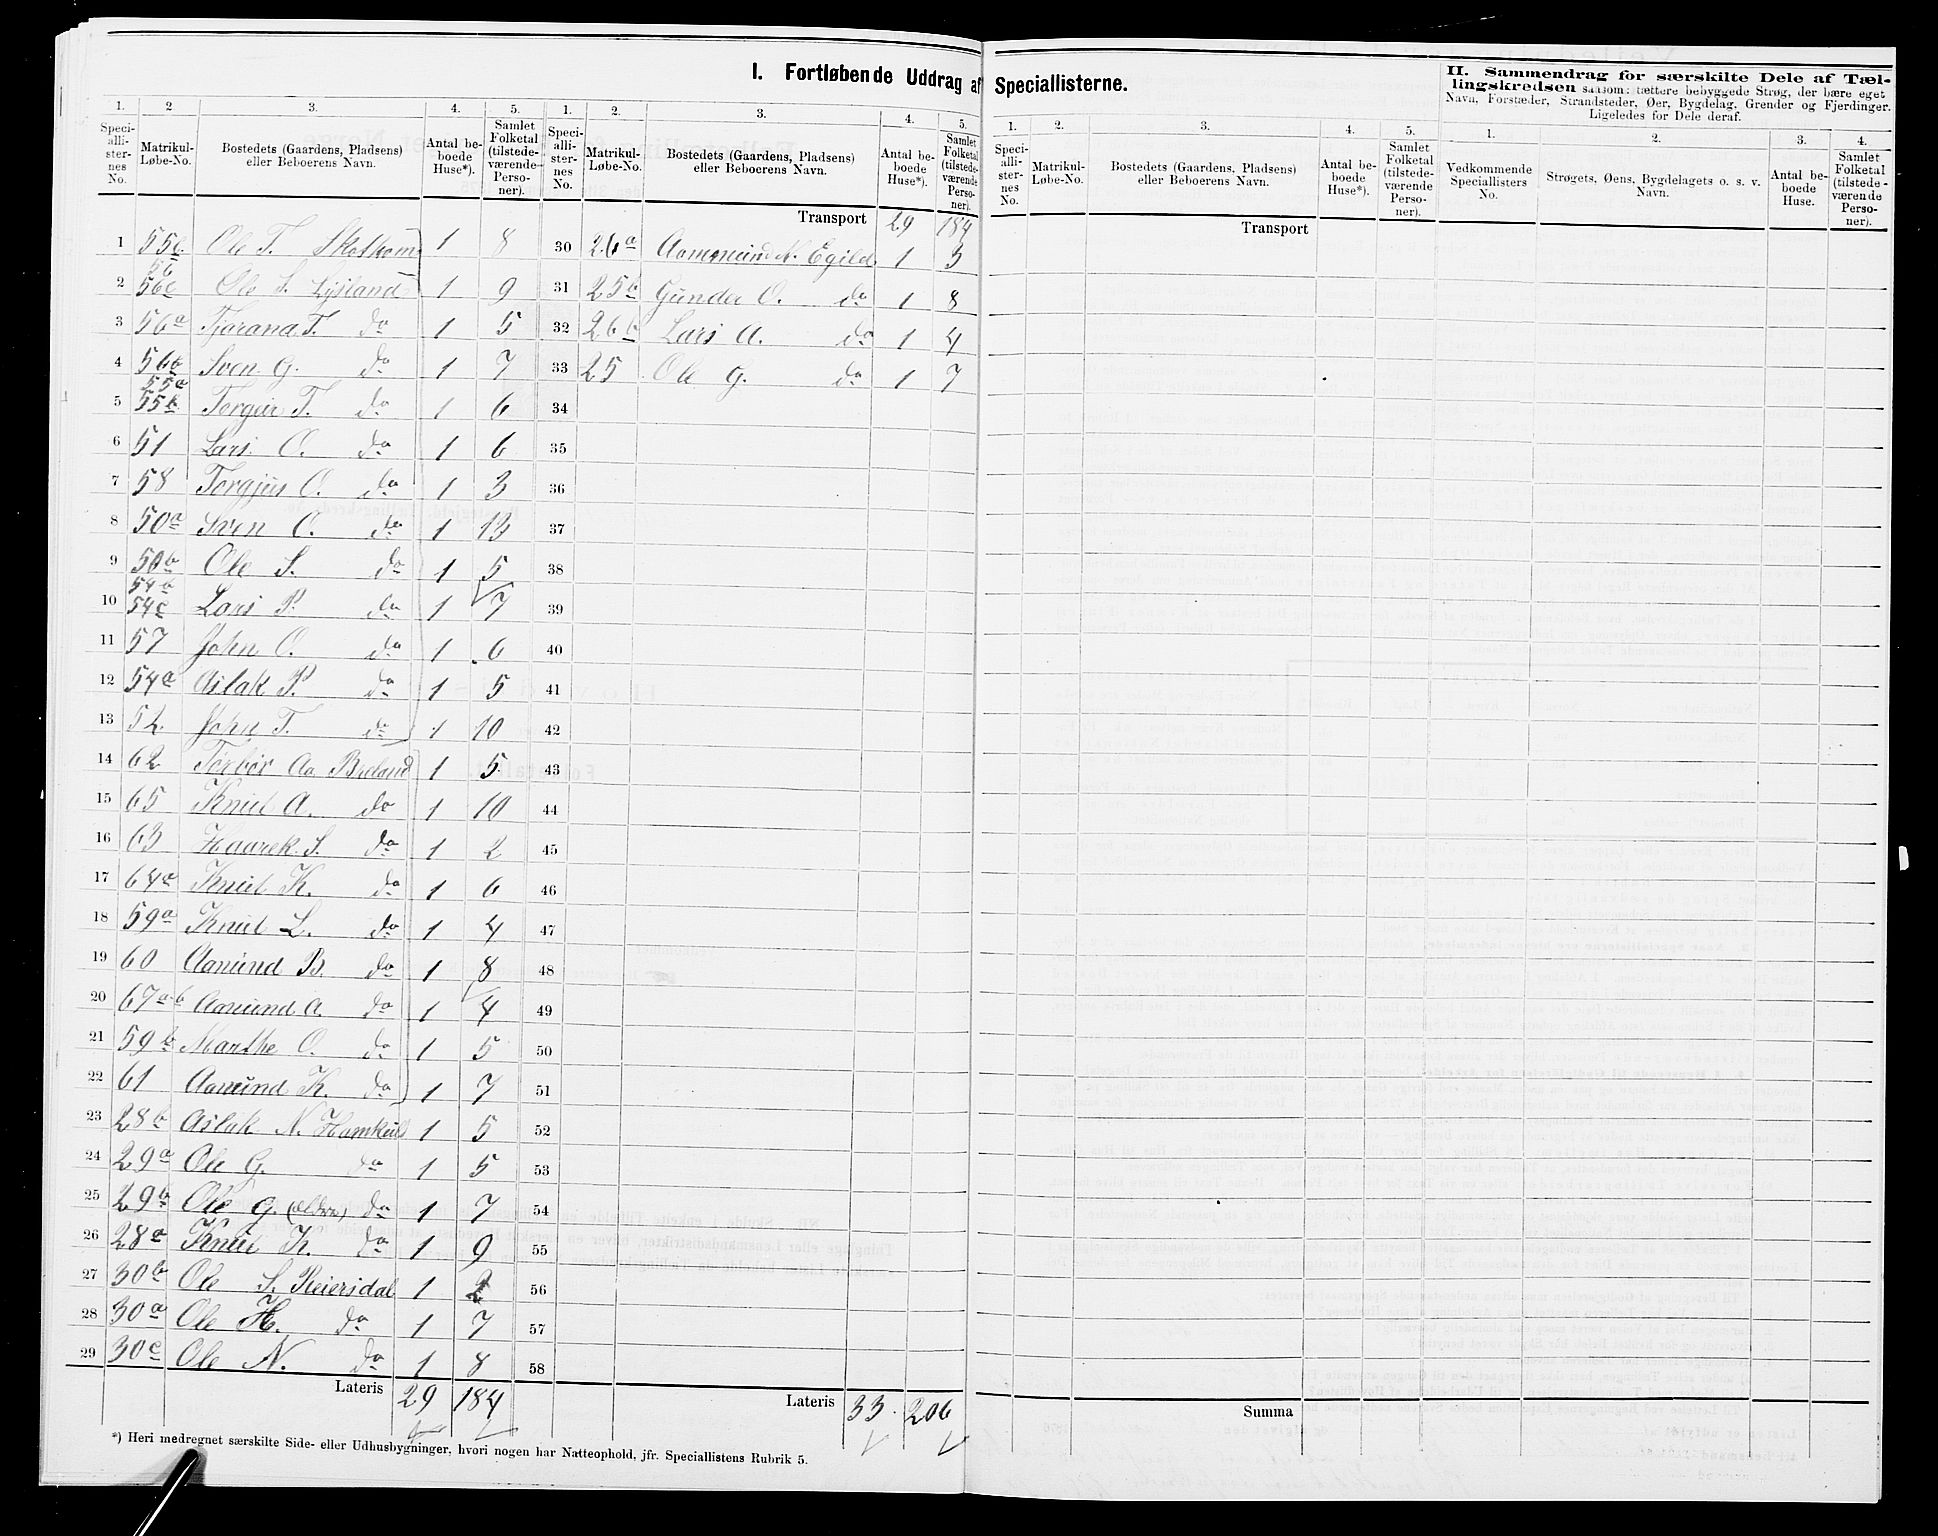 I. Fortløbende Uddrag af Speciallisterne.
1. 2. 3. 4. 5. 1. 2. 3. 4. 5.
Speciallisternes No. Matrikul-Løbe-No. Bostedets (Gaardens, Pladsens) eller Beboerens Navn. Antal beboede Huse*). Samlet Folketal (tilstedeværende Personer). Speciallisternes No. Matrikul-Løbe-No. Bostedets (Gaardens, Pladsens) eller Beboerens Navn. Antal beboede Huse*). Samlet Folketal (tilstedeværende Personer).
1 55c Ole T. 1 8
2 56c Ole S. Lysland 1 9
3 56a Tjorana T. do 1 5
4 56b Sven G. do 1 7
5 55a 55b Torgju T. do 1 6
6 51 Lars O. do 1 6
7 58 Torgjus O. do 1 3
8 50a Sven O. do 1 13
9 50b Ole S. do 1 5
10 54b 54c Lars P. do 1 7
11 57 John O. do 1 6
12 54a Aslak P. do 1 5
13 52 John T. do 1 10
14 62 Torbør Aa. Breland 1 5
15 65 Knud A. do 1 10
16 63 Haarek S. do 1 2
17 64a Knud K. do 1 6
18 59a Knud L. do 1 4
19 60 Aanund B. do 1 8
20 67a.b Aanund A. do 1 4
21 59b Marthe O. do 1 5
22 61 Aanund K. do 1 7
23 28b Aslak N. 1 5
24 29a Ole G. do 1 5
25 29b Ole G. (ældre) do 1 7
26 28a Knud K. do 1 9
27 30b Ole S. Reiersdal 1 2
28 30a Ole H. do 1 7
29 30c Ole N. do 1 8
Lateris 29 184
Transport 29 184
30 26a Aanmund N. Egild 1 3
31 25b Gunder O. do 1 8
32 26b Lars A. do 1 4
33 25 Ole G. do 1 7
34
35
36
37
38
39
40
41
42
43
44
45
46
47
48
49
50
51
52
53
54
55
56
57
58
Lateris 33 206
*) Heri medregnet særskilte Side- eller Udhusbygninger, hvori nogen har Natteophold, jfr. Speciallistens Rubrik 5.
1. 2. 3. 4. 5.
Speciallisternes No. Matrikul-Løbe-No. Bostedets (Gaardens, Pladsens) eller Beboerens Navn. Antal beboede Huse*). Samlet Folketal (tilstedeværende Personer).
Transport
Summa
II. Sammendrag for særskilte Dele af Tællingskredsen saasom: tættere bebyggede Strøg, der bære eget
Navn, Forstæder, Strandsteder, Øer, Bygdelag, Grender og Fjerdinger.
Ligeledes for Dele deraf.
1. 2. 3. 4.
Vedkommende Speciallisters No. Strøgets, Øens, Bygdelagets o. s. v. Navn. Antal beboede Huse. Samlet Folketal (tilstedeværende Personer).